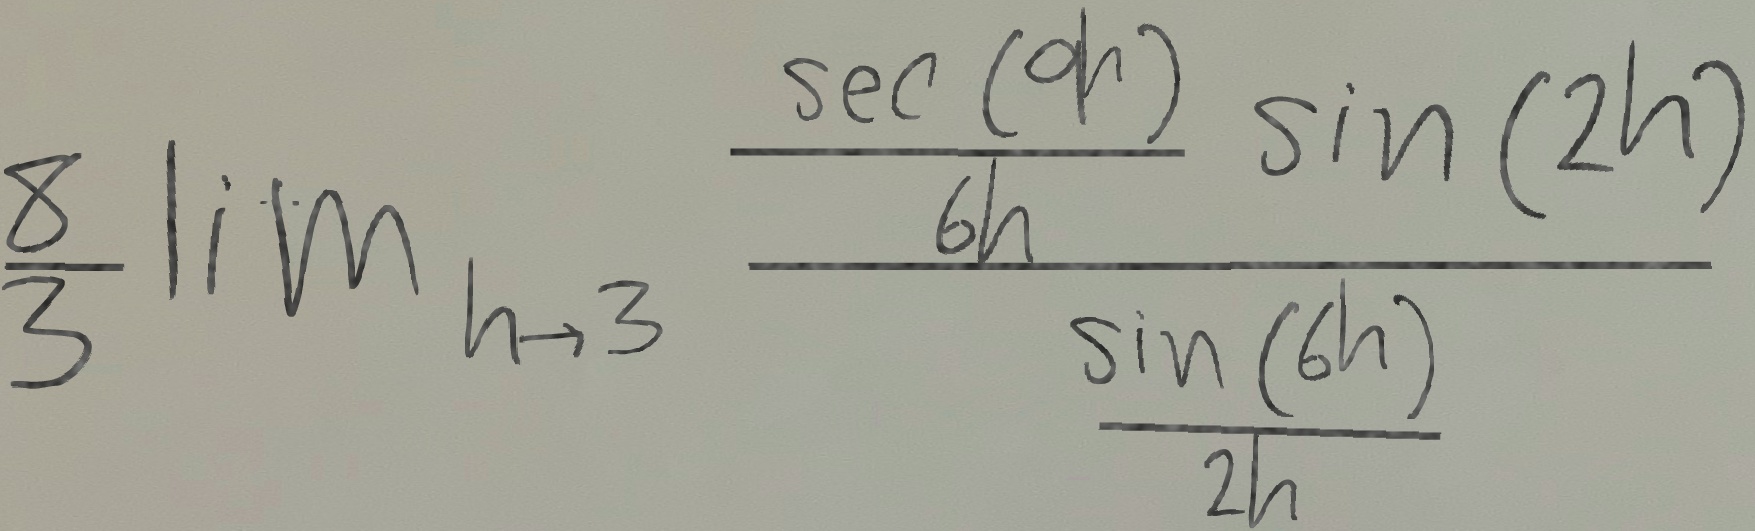 \frac{8}{3} \lim_{h \to 3} \frac{\frac{\sec(0h)}{6h} \sin(2h)}{\frac{\sin(6h)}{2h}}